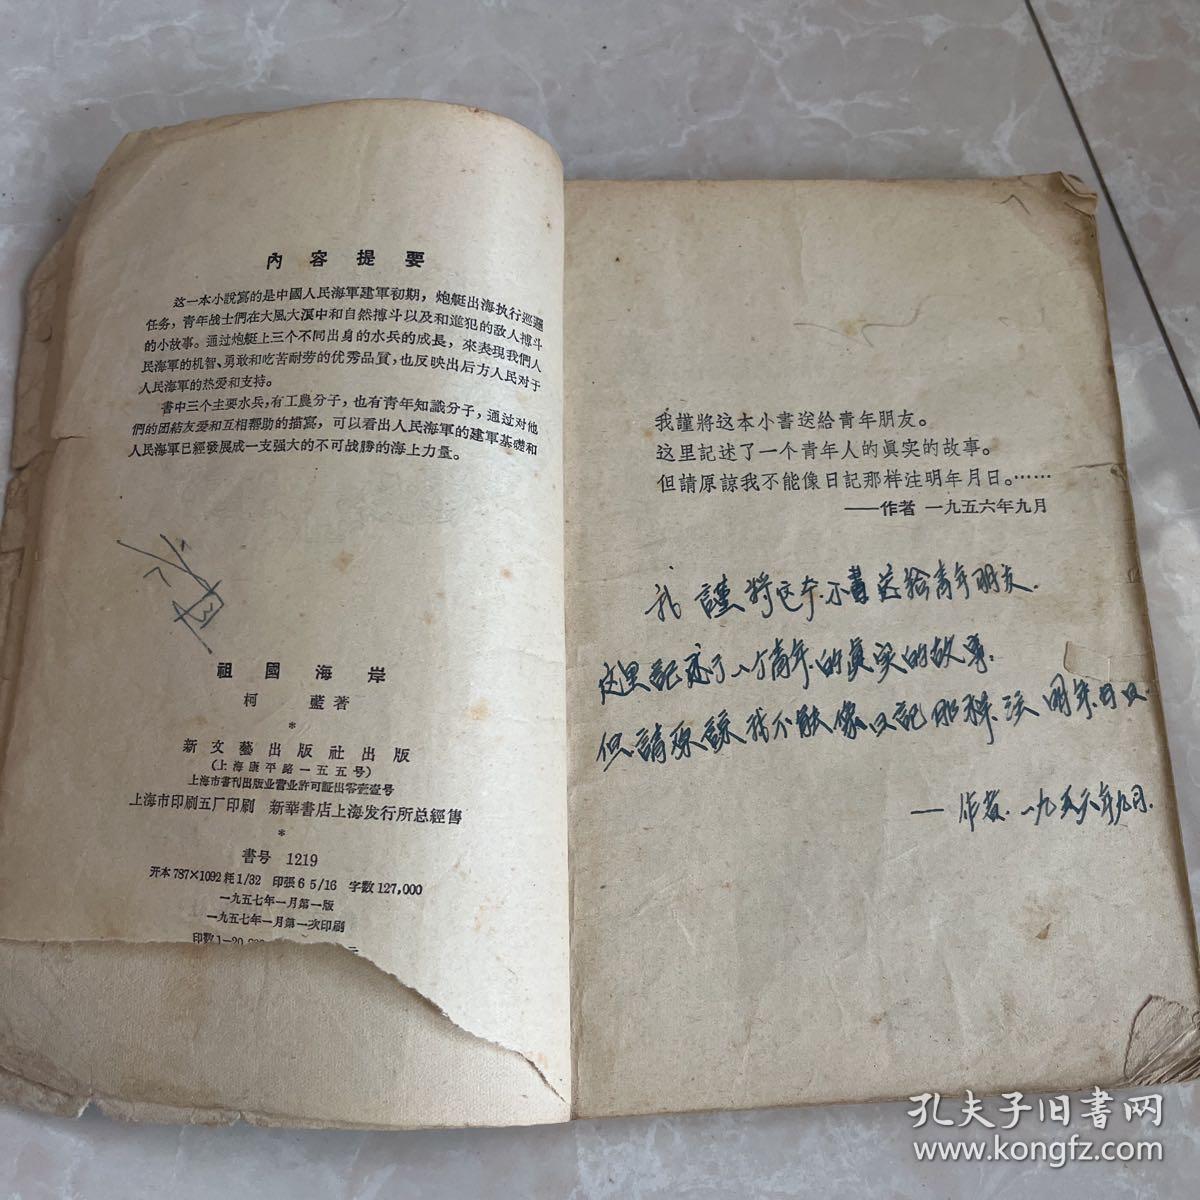 內容提要
这一本小說寫的是中國人民海軍建軍初期，炮艇出海执行巡邏
任务，青年战士們在大風大浪中和自然搏斗以及和進犯的敌人搏斗
的小故事。通过炮艇上三个不同出身的水兵的成長，來表現我們人
民海軍的机智、勇敢和吃苦耐劳的优秀品質，也反映出后方人民对于
人民海軍的热爱和支持。
書中三个主要水兵，有工農分子，也有青年知識分子，通过对他
們的团結友爱和互相帮助的描寫，可以看出人民海軍的建軍基礎和
人民海軍已經發展成一支强大的不可战勝的海上力量。
祖國海岸
柯藍著
*
新文藝出版社出版
（上海康平路一五五号）
上海市書刊出版业营业許可証出零壹壹号
上海市印刷五厂印刷 新華書店上海发行所总經售
*
書号 1219
开本 787×1092 耗 1/32 印張 6 5/16 字数 127,000
一九五七年一月第一版
一九五七年一月第一次印刷
印数 1—20
我謹將这本小書送給青年朋友。
这里記述了一个青年人的眞实的故事。
但請原諒我不能像日記那样注明年月日。……
——作者 一九五六年九月
我謹将这本小書送给青年朋友.
这里記述了一个青年的眞实的故事.
但請原諒我不能像日記那样注明年月日.
—作者.一九五六年九月.
孔夫子旧書网
www.kongfz.com